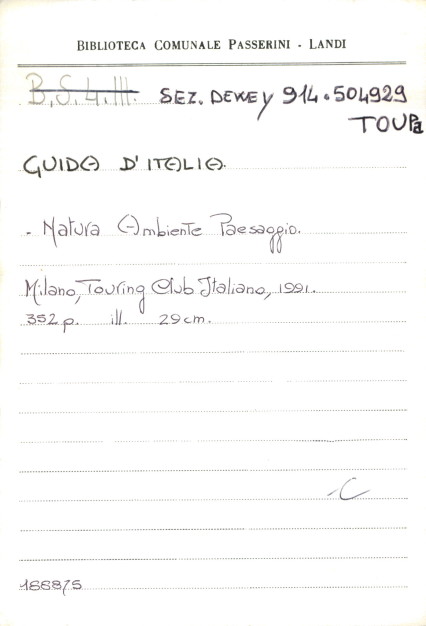 BIBLIOTECA COMUNALE PASSERINI - LANDI
B.S.4.III. SEZ. DEWEY 914.504929
TOUPa
GUIDA D'ITALIA.
- Natura Ambiente Paesaggio.
Milano, Touring Club Italiano, 1991.
352 p. ill. 29 cm.
C